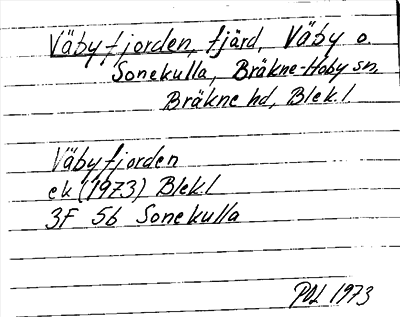 Väbyfjorden, fjärd, Väby o.
Sonekulla, Bräkne-Hoby sn,
Bräkne hd, Blek.l.
Väbyfjorden
ek (1973) Blek.l
3F 5b Sonekulla
POL 1973